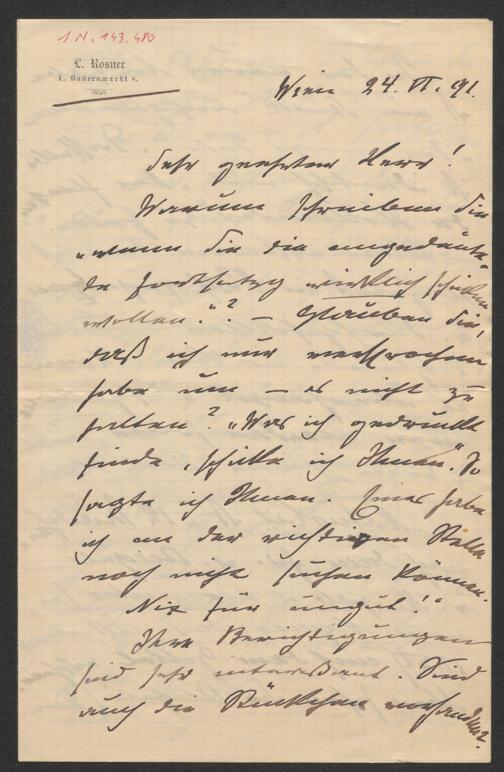 I.N. 143.480
L. Rosner
I. Bauernmarkt 8.
Wien 24. VI. 91.
Sehr geehrter Herr!
Warum schreiben Sie
„wann Sie die angedeute-
te Fortsetzg wirklich schicken
wollen."? – Glauben Sie,
daß ich nur versprochen
habe um – es nicht zu
halten? „Was ich gedruckt
finde, schicke ich Ihnen". So
sagte ich Ihnen. Eines habe
ich an der richtigen Stelle
noch nicht suchen können.
Nix für ungut!"
Ihre Berichtigungen
sind sehr interessant. Sind
auch die Stückchen vorhanden?